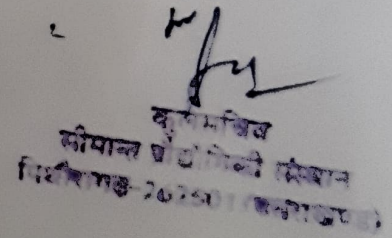 कुलसचिव
सीमान्त प्रौद्योगिकी संस्थान
पिथौरागढ़-262501 (उत्तराखण्ड)